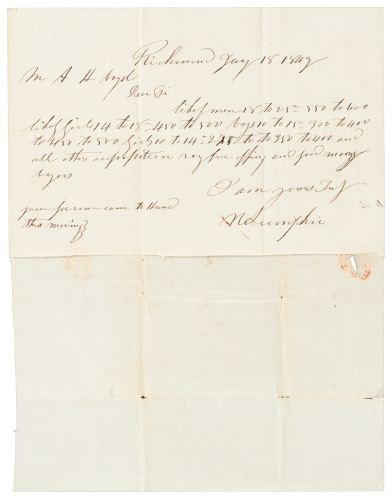 Richmond Jany 18 1849
Mr A H Boyd
Dear Sir
likely men 18 to 25 - 550 to 600
likely Girls 14 to 18 - 450 to 500 boys 10 to 15 - 300 to 400
to 450 to 500 Girls 10 to 14 : 225 to to 350 to 400 and
all other in proportion and good many
buyers
I am yours
your came to Hand
this morning